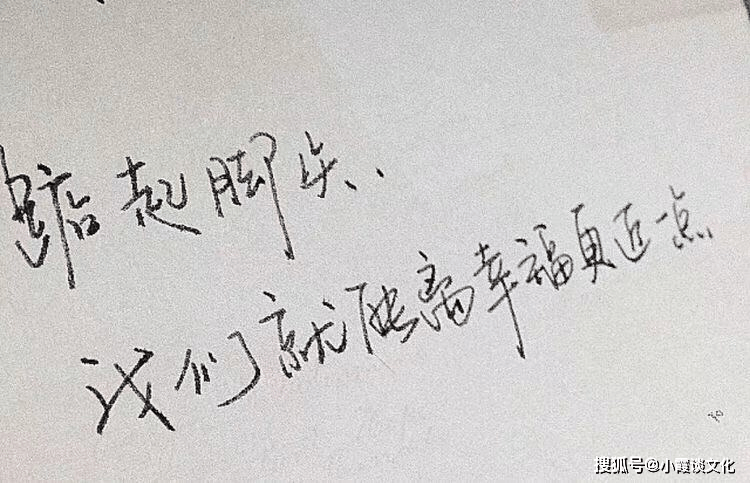 踮起脚尖..
我们就能离幸福更近一点
搜狐号@小霞谈文化